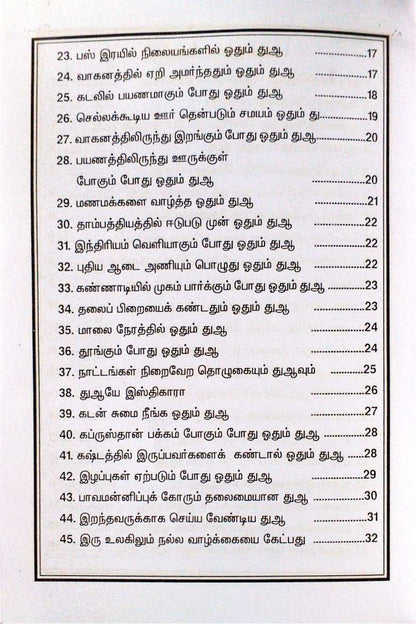 23. பஸ் இரயில் நிலையங்களில் ஓதும் துஆ ................17
24. வாகனத்தில் ஏறி அமர்ந்ததும் ஓதும் துஆ ................17
25. கடலில் பயணமாகும் போது ஓதும் துஆ ................18
26. செல்லக்கூடிய ஊர் தென்படும் சமயம் ஓதும் து................19
27. வாகனத்திலிருந்து இறங்கும் போது ஓதும் துஆ................20
28. பயணத்திலிருந்து ஊருக்குள்
போகும் போது ஓதும் துஆ ................20
29. மணமக்களை வாழ்த்த ஓதும் துஆ ................21
30. தாம்பத்தியத்தில் ஈடுபடு முன் ஓதும் துஆ ................22
31. இந்திரியம் வெளியாகும் போது ஓதும் துஆ ................22
32. புதிய ஆடை அணியும் பொழுது ஓதும் துஆ ................22
33. கண்ணாடியில் முகம் பார்க்கும் போது ஓதும் துஆ ............23
34. தலைப் பிறையைக் கண்டதும் ஓதும் துஆ ................23
35. மாலை நேரத்தில் ஓதும் துஆ ................24
36. தூங்கும் போது ஓதும் துஆ ................24
37. நாட்டங்கள் நிறைவேற தொழுகையும் துஆவும் ..............25
38. துஆயே இஸ்திகாரா ................26
39. கடன் சுமை நீங்க ஓதும் துஆ ................27
40. கப்ருஸ்தான் பக்கம் போகும் போது ஓதும் துஆ ..............28
41. கஷ்டத்தில் இருப்பவர்களைக் கண்டால் ஓதும் துஆ ......28
42. இழப்புகள் ஏற்படும் போது ஓதும் துஆ ................29
43. பாவமன்னிப்புக் கோரும் தலைமையான துஆ ................30
44. இறந்தவருக்காக செய்ய வேண்டிய துஆ ................31
45. இரு உலகிலும் நல்ல வாழ்க்கையை கேட்பது ................32